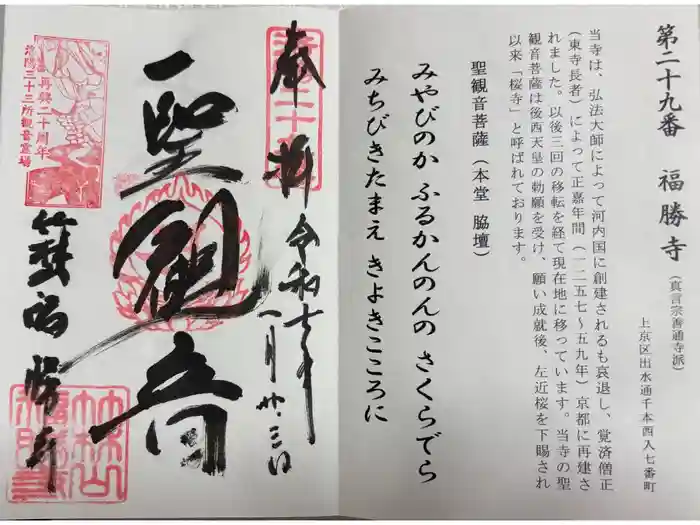 第二十九番　福勝寺（真言宗善通寺派）
上京区出水通千本西入七番町
当寺は、弘法大師によって河内国に創建されるも衰退し、覚済僧正
（東寺長者）によって正嘉年間（一二五七〜五九年）京都に再建さ
れました。以後三回の移転を経て現在地に移っています。当寺の聖
観音菩薩は後西天皇の勅願を受け、願い成就後、左近桜を下賜され
以来「桜寺」と呼ばれております。
聖観音菩薩（本堂 脇壇）
みやびのか ふるかんのんの さくらでら
みちびきたまえ きよきこころに
奉拝
令和七年
一月廿三日
聖観音
再興二十周年
洛陽三十三所観音霊場
福勝寺